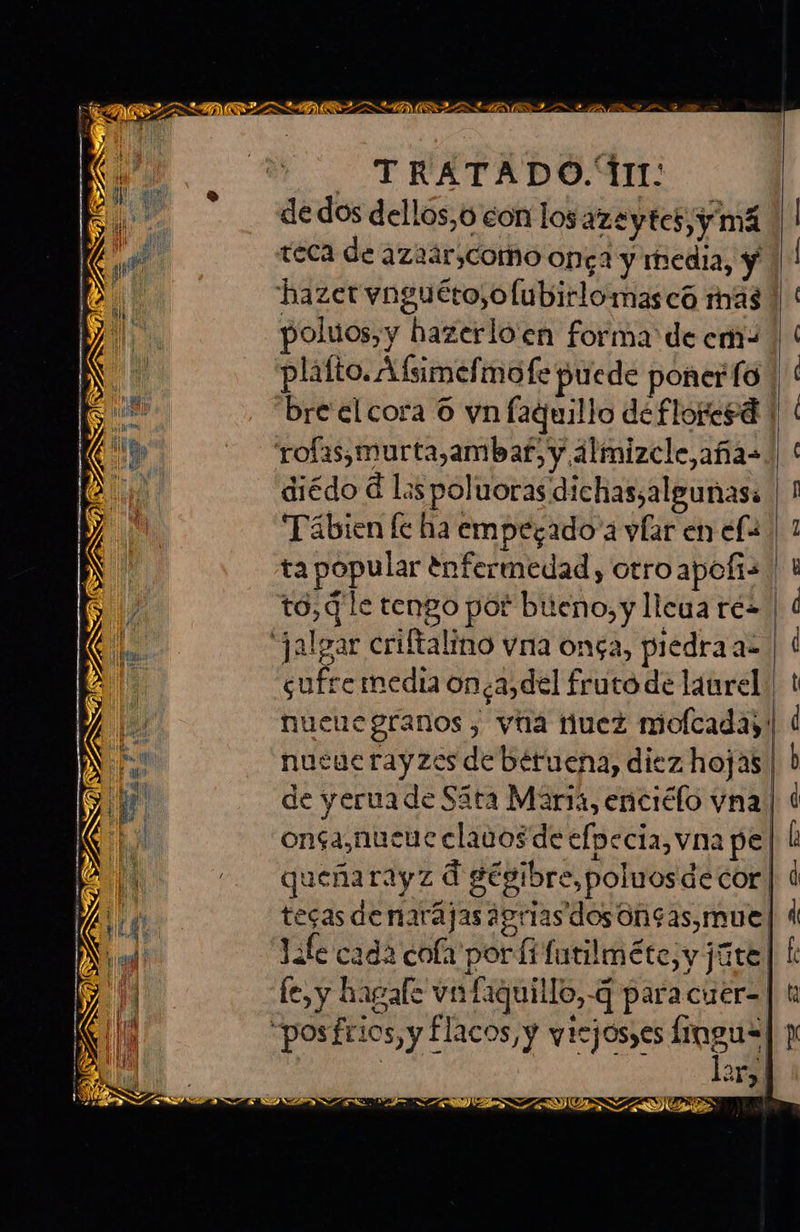 TRATADO. III.
de dos dellos, o con los azeytes, y mã
teca de azaar, como onça y media, y
hazer vnguẽto, o ſubirlo mas cõ mas
poluos, y hazerlo en forma de em-
plaſto. Aſsimeſmo ſe puede poner ſo
bre el coraõ vn ſaquillo de flores đ
roſas, murta, ambar, y almizcle, aña-
diẽdo đ las poluoras dichas, algunas.
Tãbien ſe ha empeçado a vſar en eſ-
ta popular ẽnfermedad, otro apoſi-
to, q̃ le tengo por bueno, y lleua re-
jalgar criſtalino vna onça, piedra a-
çufre media onça, del fruto de laurel
nueue granos, vna nuez moſcada,
nueue rayzes de beruena, diez hojas
de yerua de Sãta Maria, enciẽſo vna
onça, nueue clauos de eſpecia, vna pe
queña rayz đ gẽgibre, poluos de cor
teças de narãjas agrias dos onças, mue
laſe cada coſa por ſi ſutilmẽte, y jũte
ſe, y hagaſe vn ſaquillo, q̃ para cuer-
pos frios, y flacos, y viejos, es ſingu-
lar,